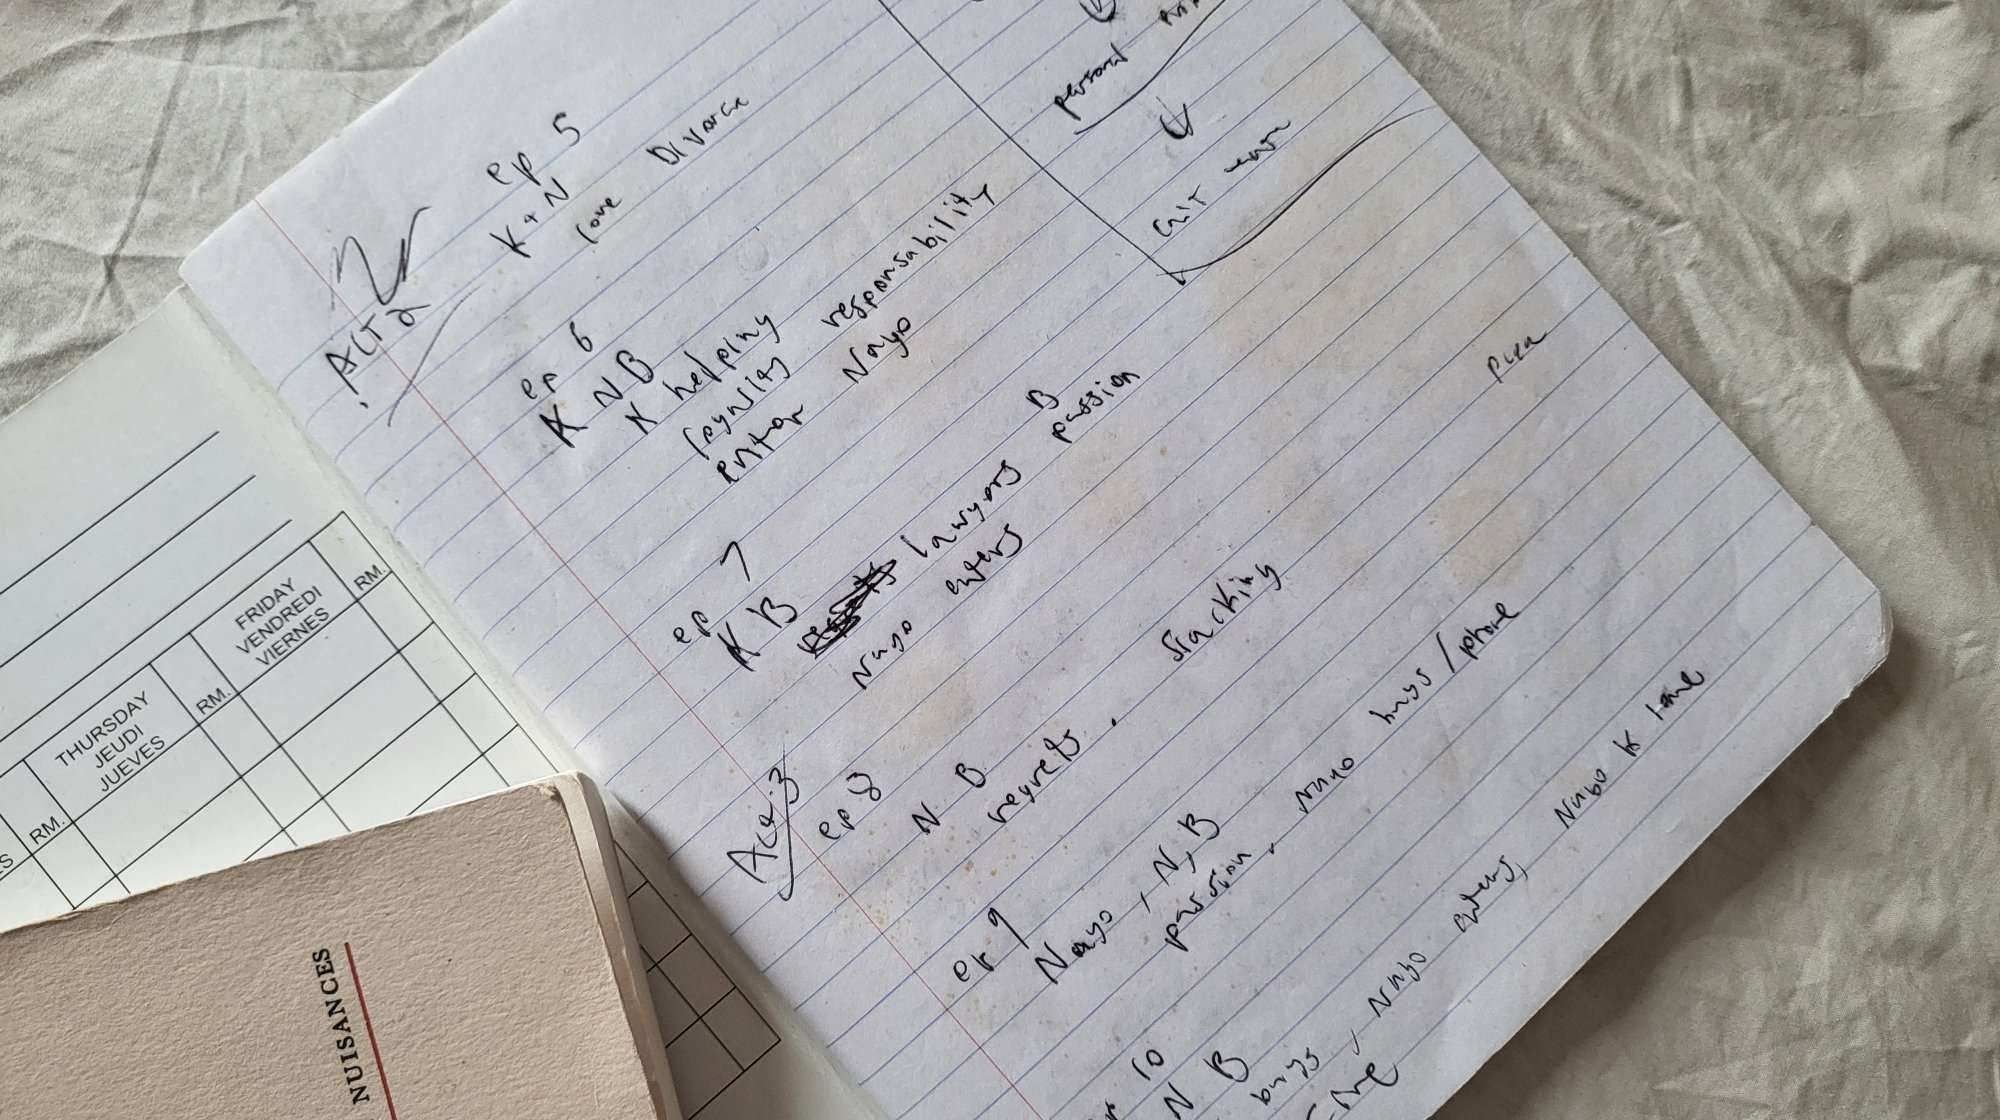 personal
Act 2
ep 5
K + N
love Divorce
ep 6
K N B
K helping
responsability
enter Nayo
ep 7
K B lawyers B
Nayo enters passion
Act 3
ep 8
N B
regrets. stacking
ep 9
Nayo, N, B
passion. Nayo buys / phone
10
N B
buys, Nayo enters, K love
THURSDAY
JEUDI
JUEVES
RM.
FRIDAY
VENDREDI
VIERNES
RM.
RM.
NUISANCES